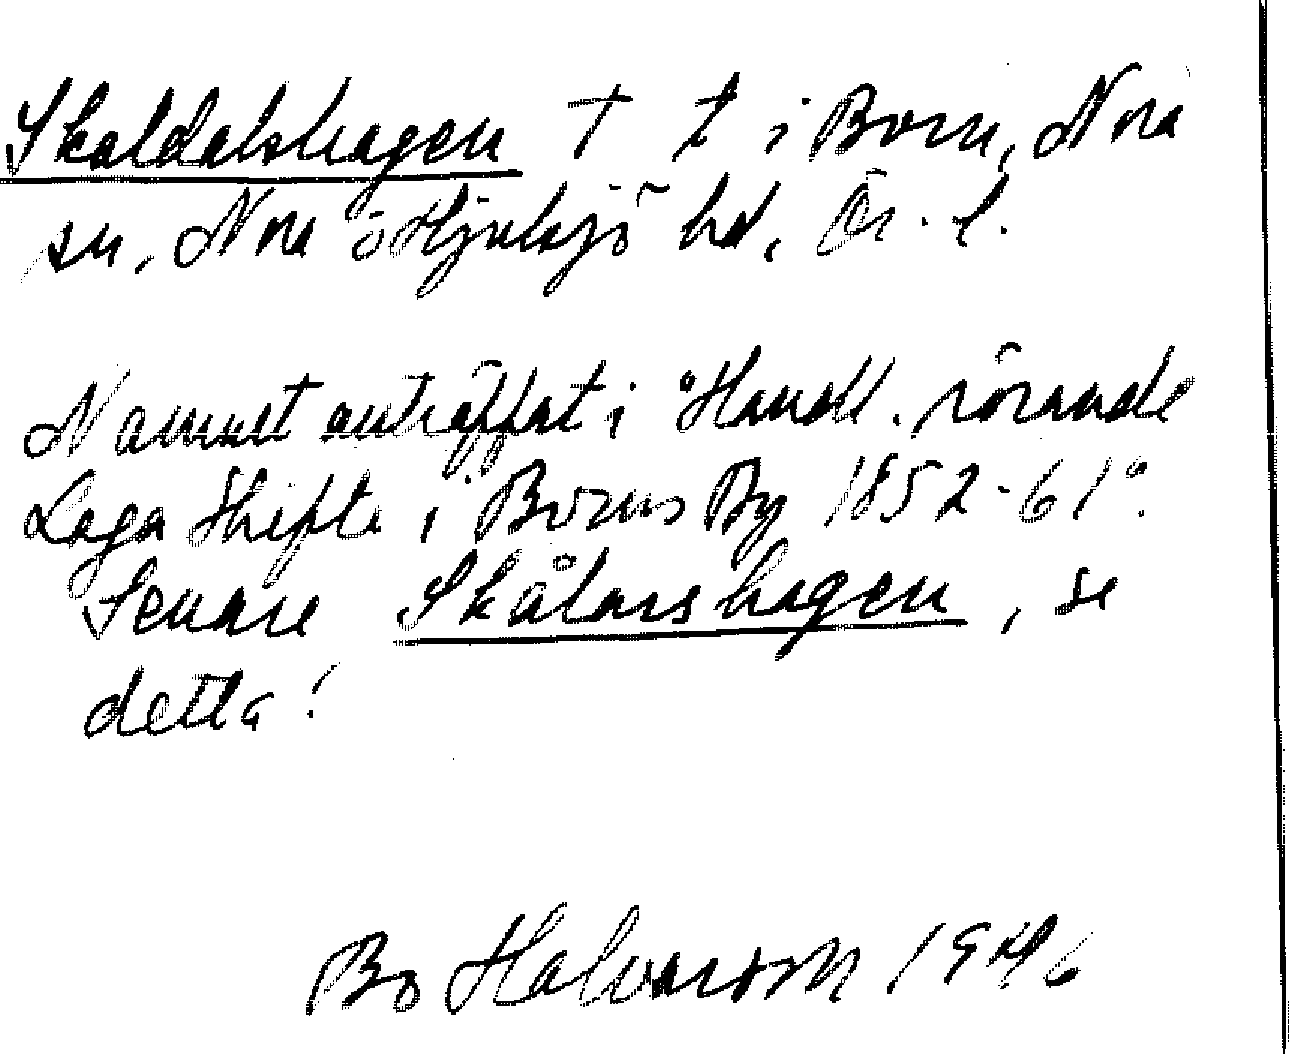 Skaldalshagen † t i Born, Nora
sn, Nora o Hjulsjö hd, Ör. l.
Namnet anträffat i "Handl. rörande
Laga Skifte i Borns By 1852-61".
Senare Skålarshagen, se
detta!
Bo Halvarson 1946